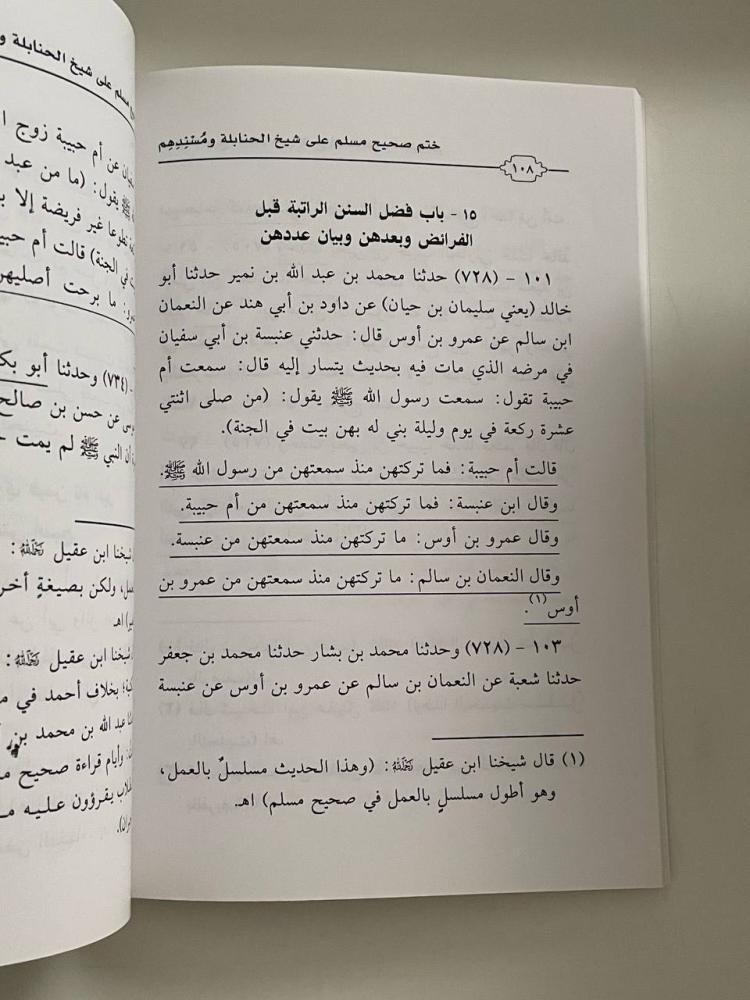 ختم صحيح مسلم على شيخ الحنابلة ومُسْنِدِهِم
١٠٨
١٥ - باب فضل السنن الراتبة قبل
الفرائض وبعدهن وبيان عددهن
١٠١ - (٧٢٨) حدثنا محمد بن عبد الله بن نمير حدثنا أبو
خالد (يعني سليمان بن حيان) عن داود بن أبي هند عن النعمان
ابن سالم عن عمرو بن أوس قال: حدثني عنبسة بن أبي سفيان
في مرضه الذي مات فيه بحديث يتسار إليه قال: سمعت أم
حبيبة تقول: سمعت رسول الله ﷺ يقول: (من صلى اثنتي
عشرة ركعة في يوم وليلة بني له بهن بيت في الجنة).
قالت أم حبيبة: فما تركتهن منذ سمعتهن من رسول الله ﷺ.
وقال ابن عنبسة: فما تركتهن منذ سمعتهن من أم حبيبة.
وقال عمرو بن أوس: ما تركتهن منذ سمعتهن من عنبسة.
وقال النعمان بن سالم: ما تركتهن منذ سمعتهن من عمرو بن
أوس(١).
١٠٣ - (٧٢٨) وحدثنا محمد بن بشار حدثنا محمد بن جعفر
حدثنا شعبة عن النعمان بن سالم عن عمرو بن أوس عن عنبسة
(١) قال شيخنا ابن عقيل رَحِمَهُ اللهُ: (وهذا الحديث مسلسلٌ بالعمل،
وهو أطول مسلسلٍ بالعمل في صحيح مسلم) اهـ.
مسلم على شيخ الحنابلة
عن أم حبيبة زوج
ﷺ يقول: (ما من عبد
تطوعا غير فريضة إلا
في الجنة) قالت أم
ما برحت أصليهن
(٧٣٤) وحدثنا أبو
عن حسن بن صالح
أن النبي ﷺ لم يمت
شيخنا ابن عقيل رَحِمَهُ اللهُ:
ولكن بصيغةٍ
اهـ
شيخنا ابن عقيل رَحِمَهُ اللهُ:
بخلاف أحمد في
عبد الله بن محمد بن
وأيام قراءة صحيح
يقرؤون عليه